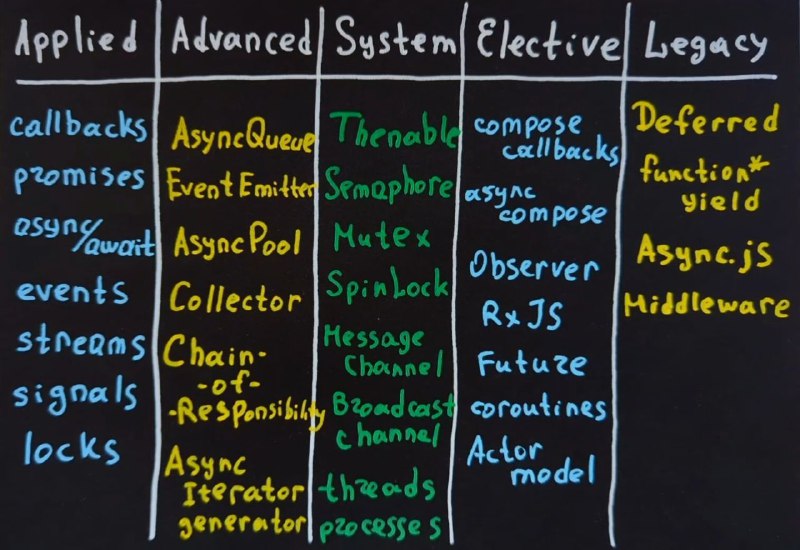 Applied
callbacks
promises
async/await
events
streams
signals
locks
Advanced
AsyncQueue
EventEmitter
AsyncPool
Collector
Chain-
-of-
-Responsibility
Async
Iterator
generator
System
Thenable
Semaphore
Mutex
SpinLock
Message
Channel
Broadcast
channel
threads
processes
Elective
compose
callbacks
async
compose
Observer
RxJS
Future
coroutines
Actor
model
Legacy
Deferred
function*
yield
Async.js
Middleware